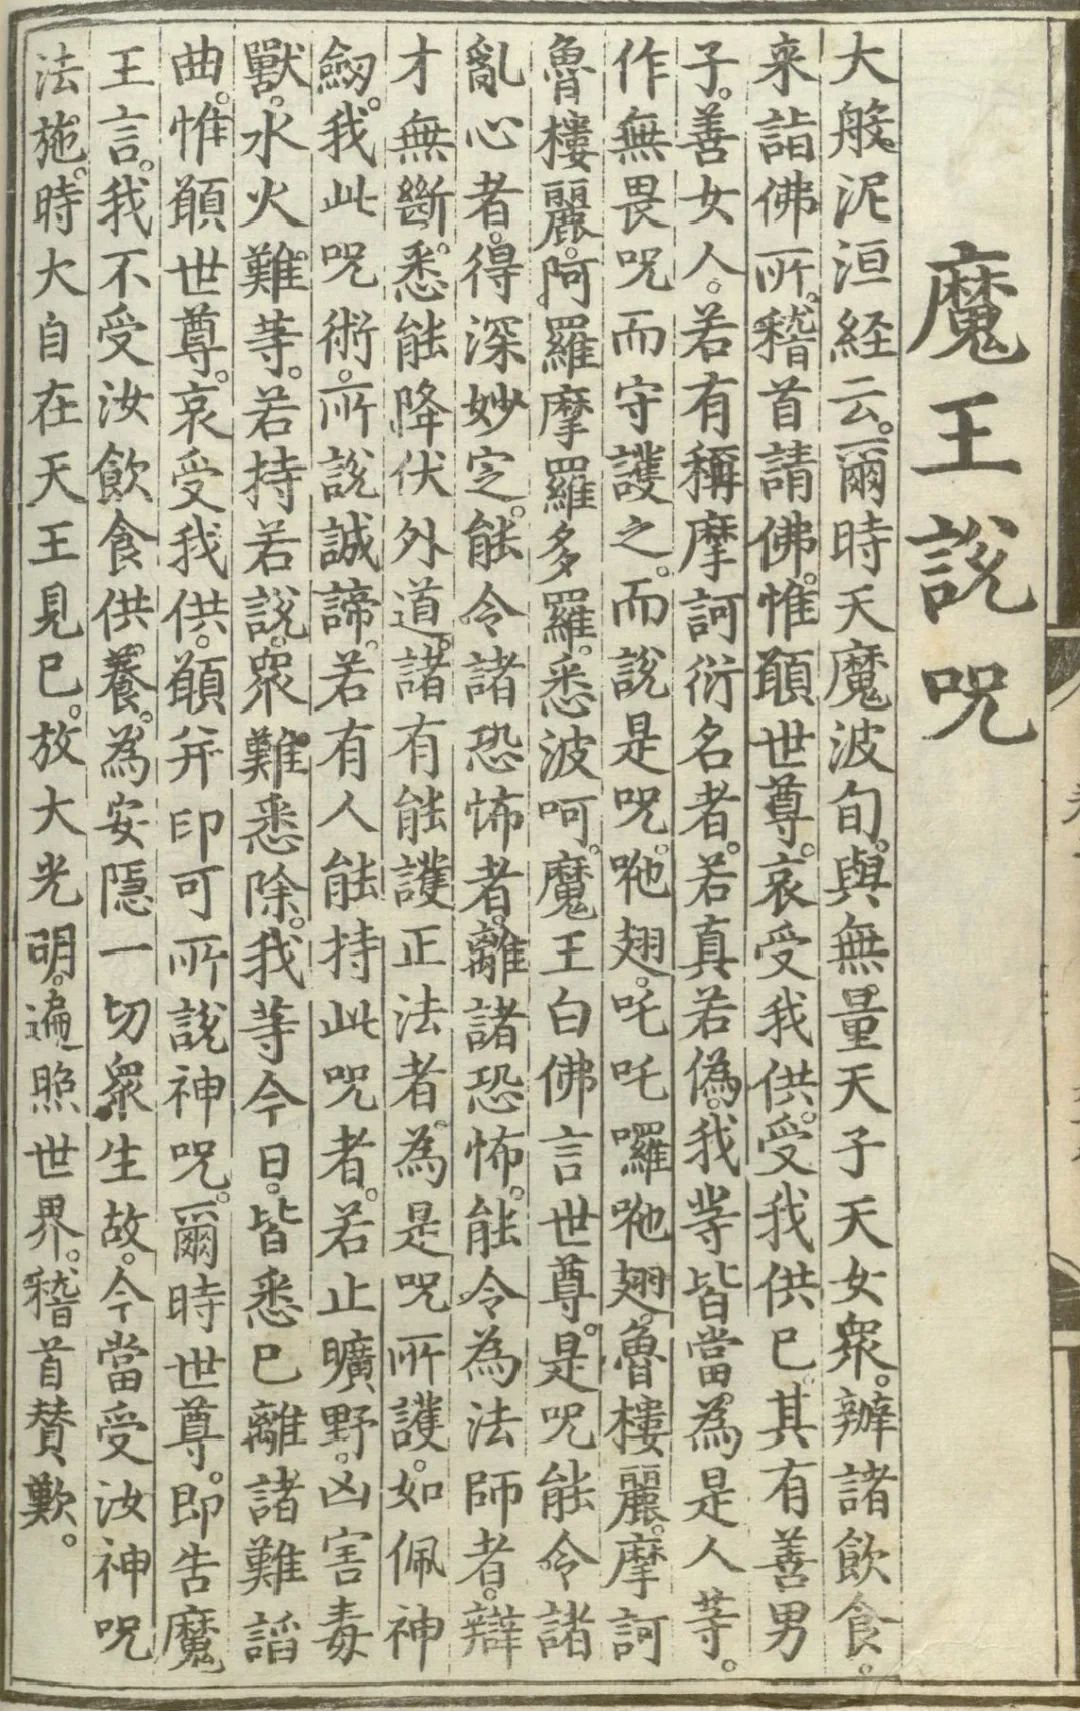 魔王說咒
大般泥洹経云。爾時天魔波旬。與無量天子天女衆。辦諸飲食。
来詣佛所。稽首請佛。惟願世尊。哀受我供。受我供已。其有善男
子。善女人。若有稱摩訶衍名者。若真若偽。我等皆當。為是人等。
作無畏咒而守護之。而說是咒。吔翅。吒吒囉吔翅。魯樓麗。摩訶
魯樓麗。阿羅摩羅多羅。悉波呵。魔王白佛言世尊。是咒能令諸
亂心者。得深妙定。能令諸恐怖者。離諸恐怖。能令為法師者。辯
才無斷。悉能降伏外道。諸有能護正法者。為是咒所護。如佩神
劔。我此咒術。所說誠諦。若有人能持此咒者。若止曠野。凶害毒
獸。水火難等。若持若說。衆難悉除。我等今日。皆悉已離諸難諂
曲。惟願世尊。哀受我供。願并印可所說神咒。爾時世尊。即告魔
王言。我不受汝飲食供養。為安隱一切衆生故。今當受汝神咒
法施。時大自在天王見已。放大光明。遍照世界。稽首賛歎。